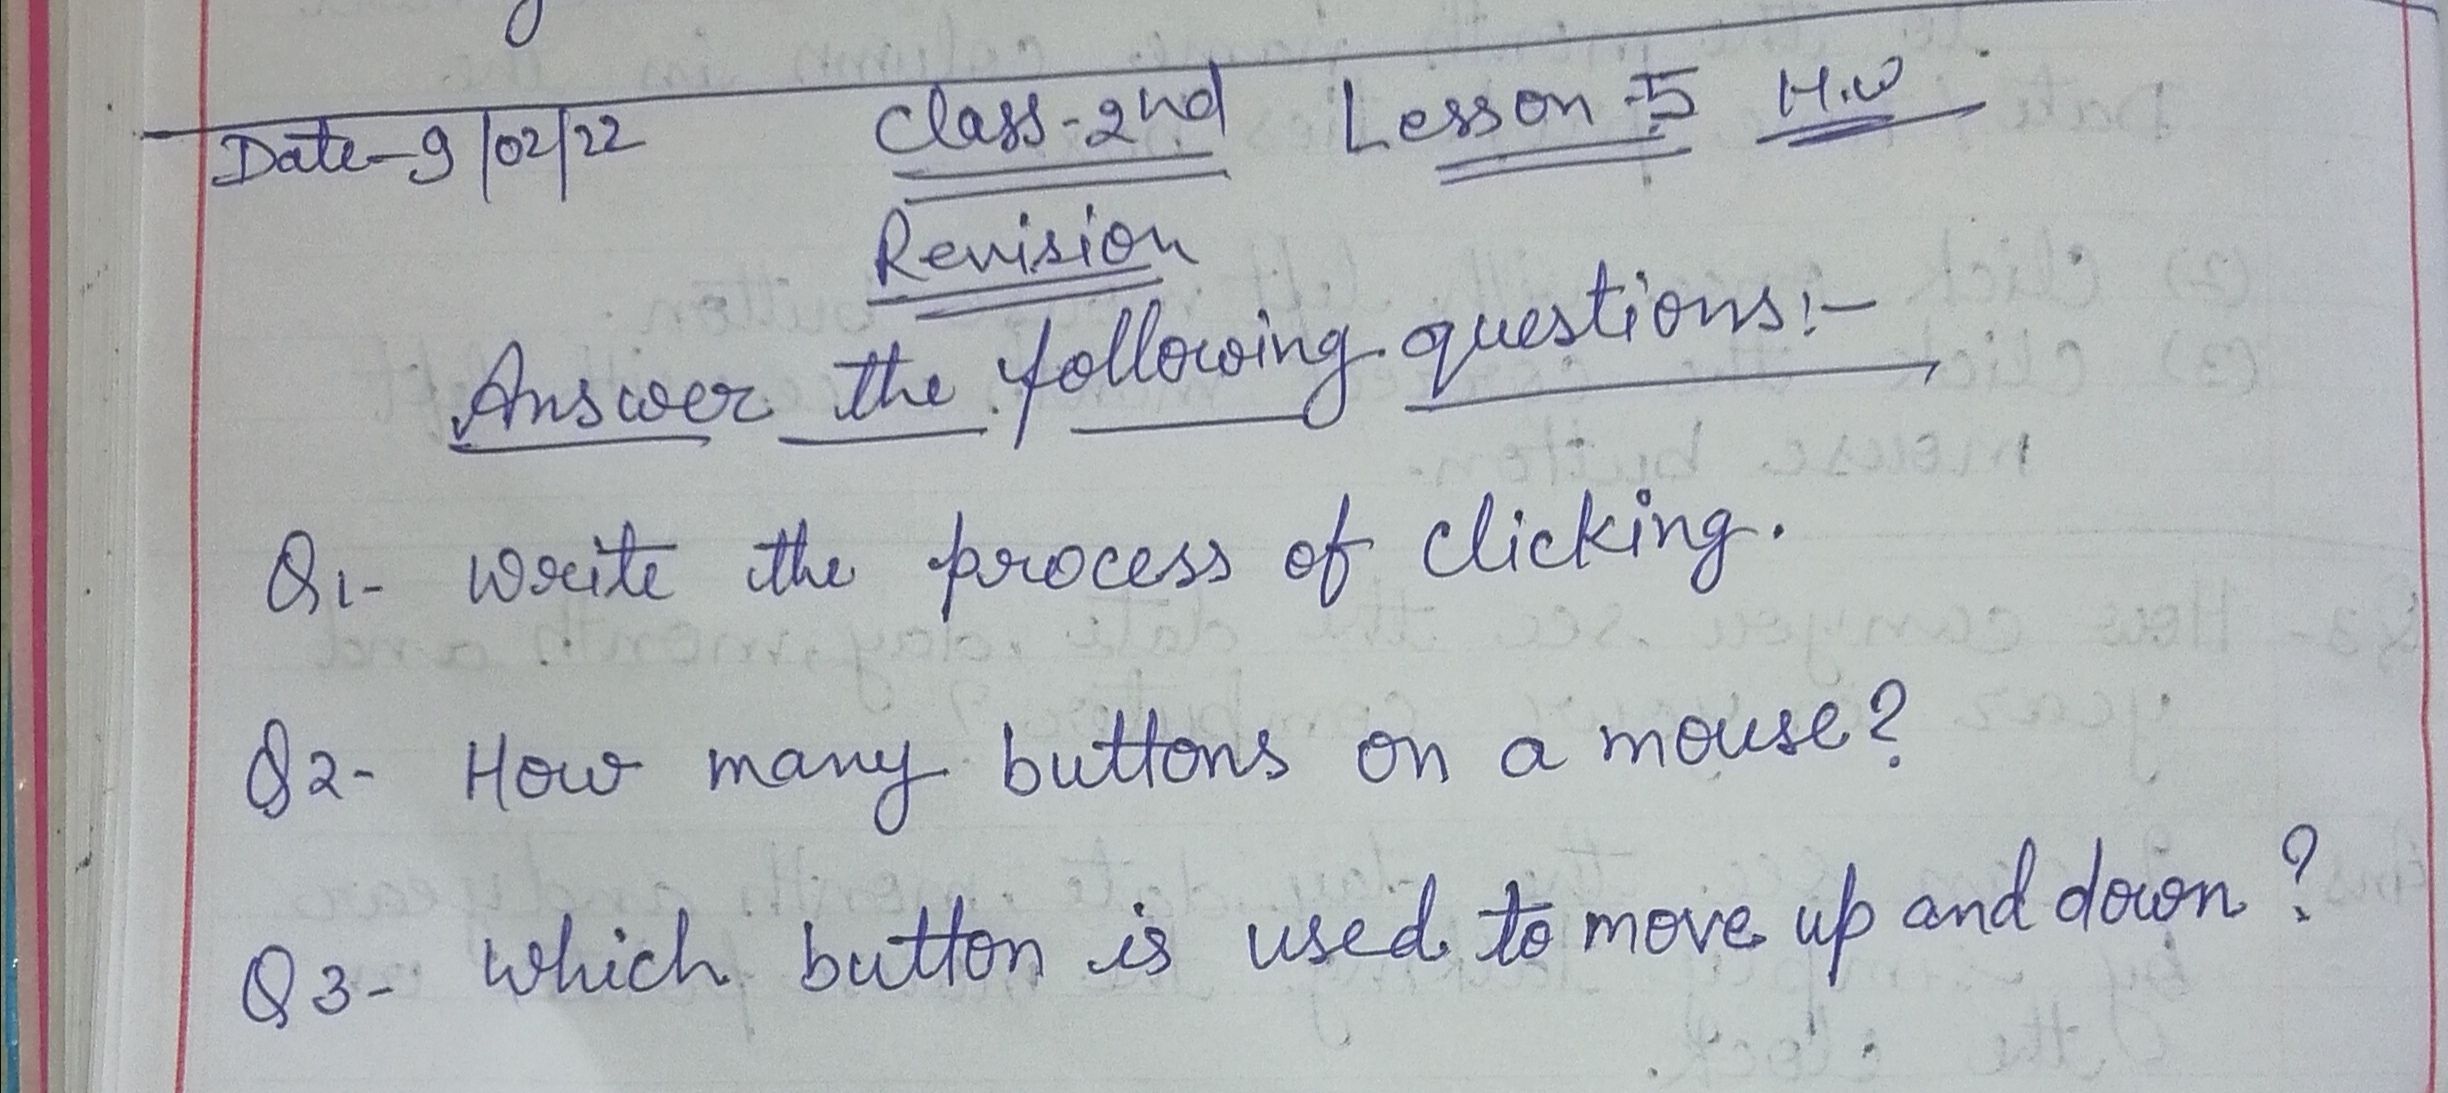 Date-9/02/22 Class-2nd Lesson-5 H.W
Revision
Answer the following questions:-
Q1- Write the process of clicking.
Q2- How many buttons on a mouse?
Q3- Which button is used to move up and down?